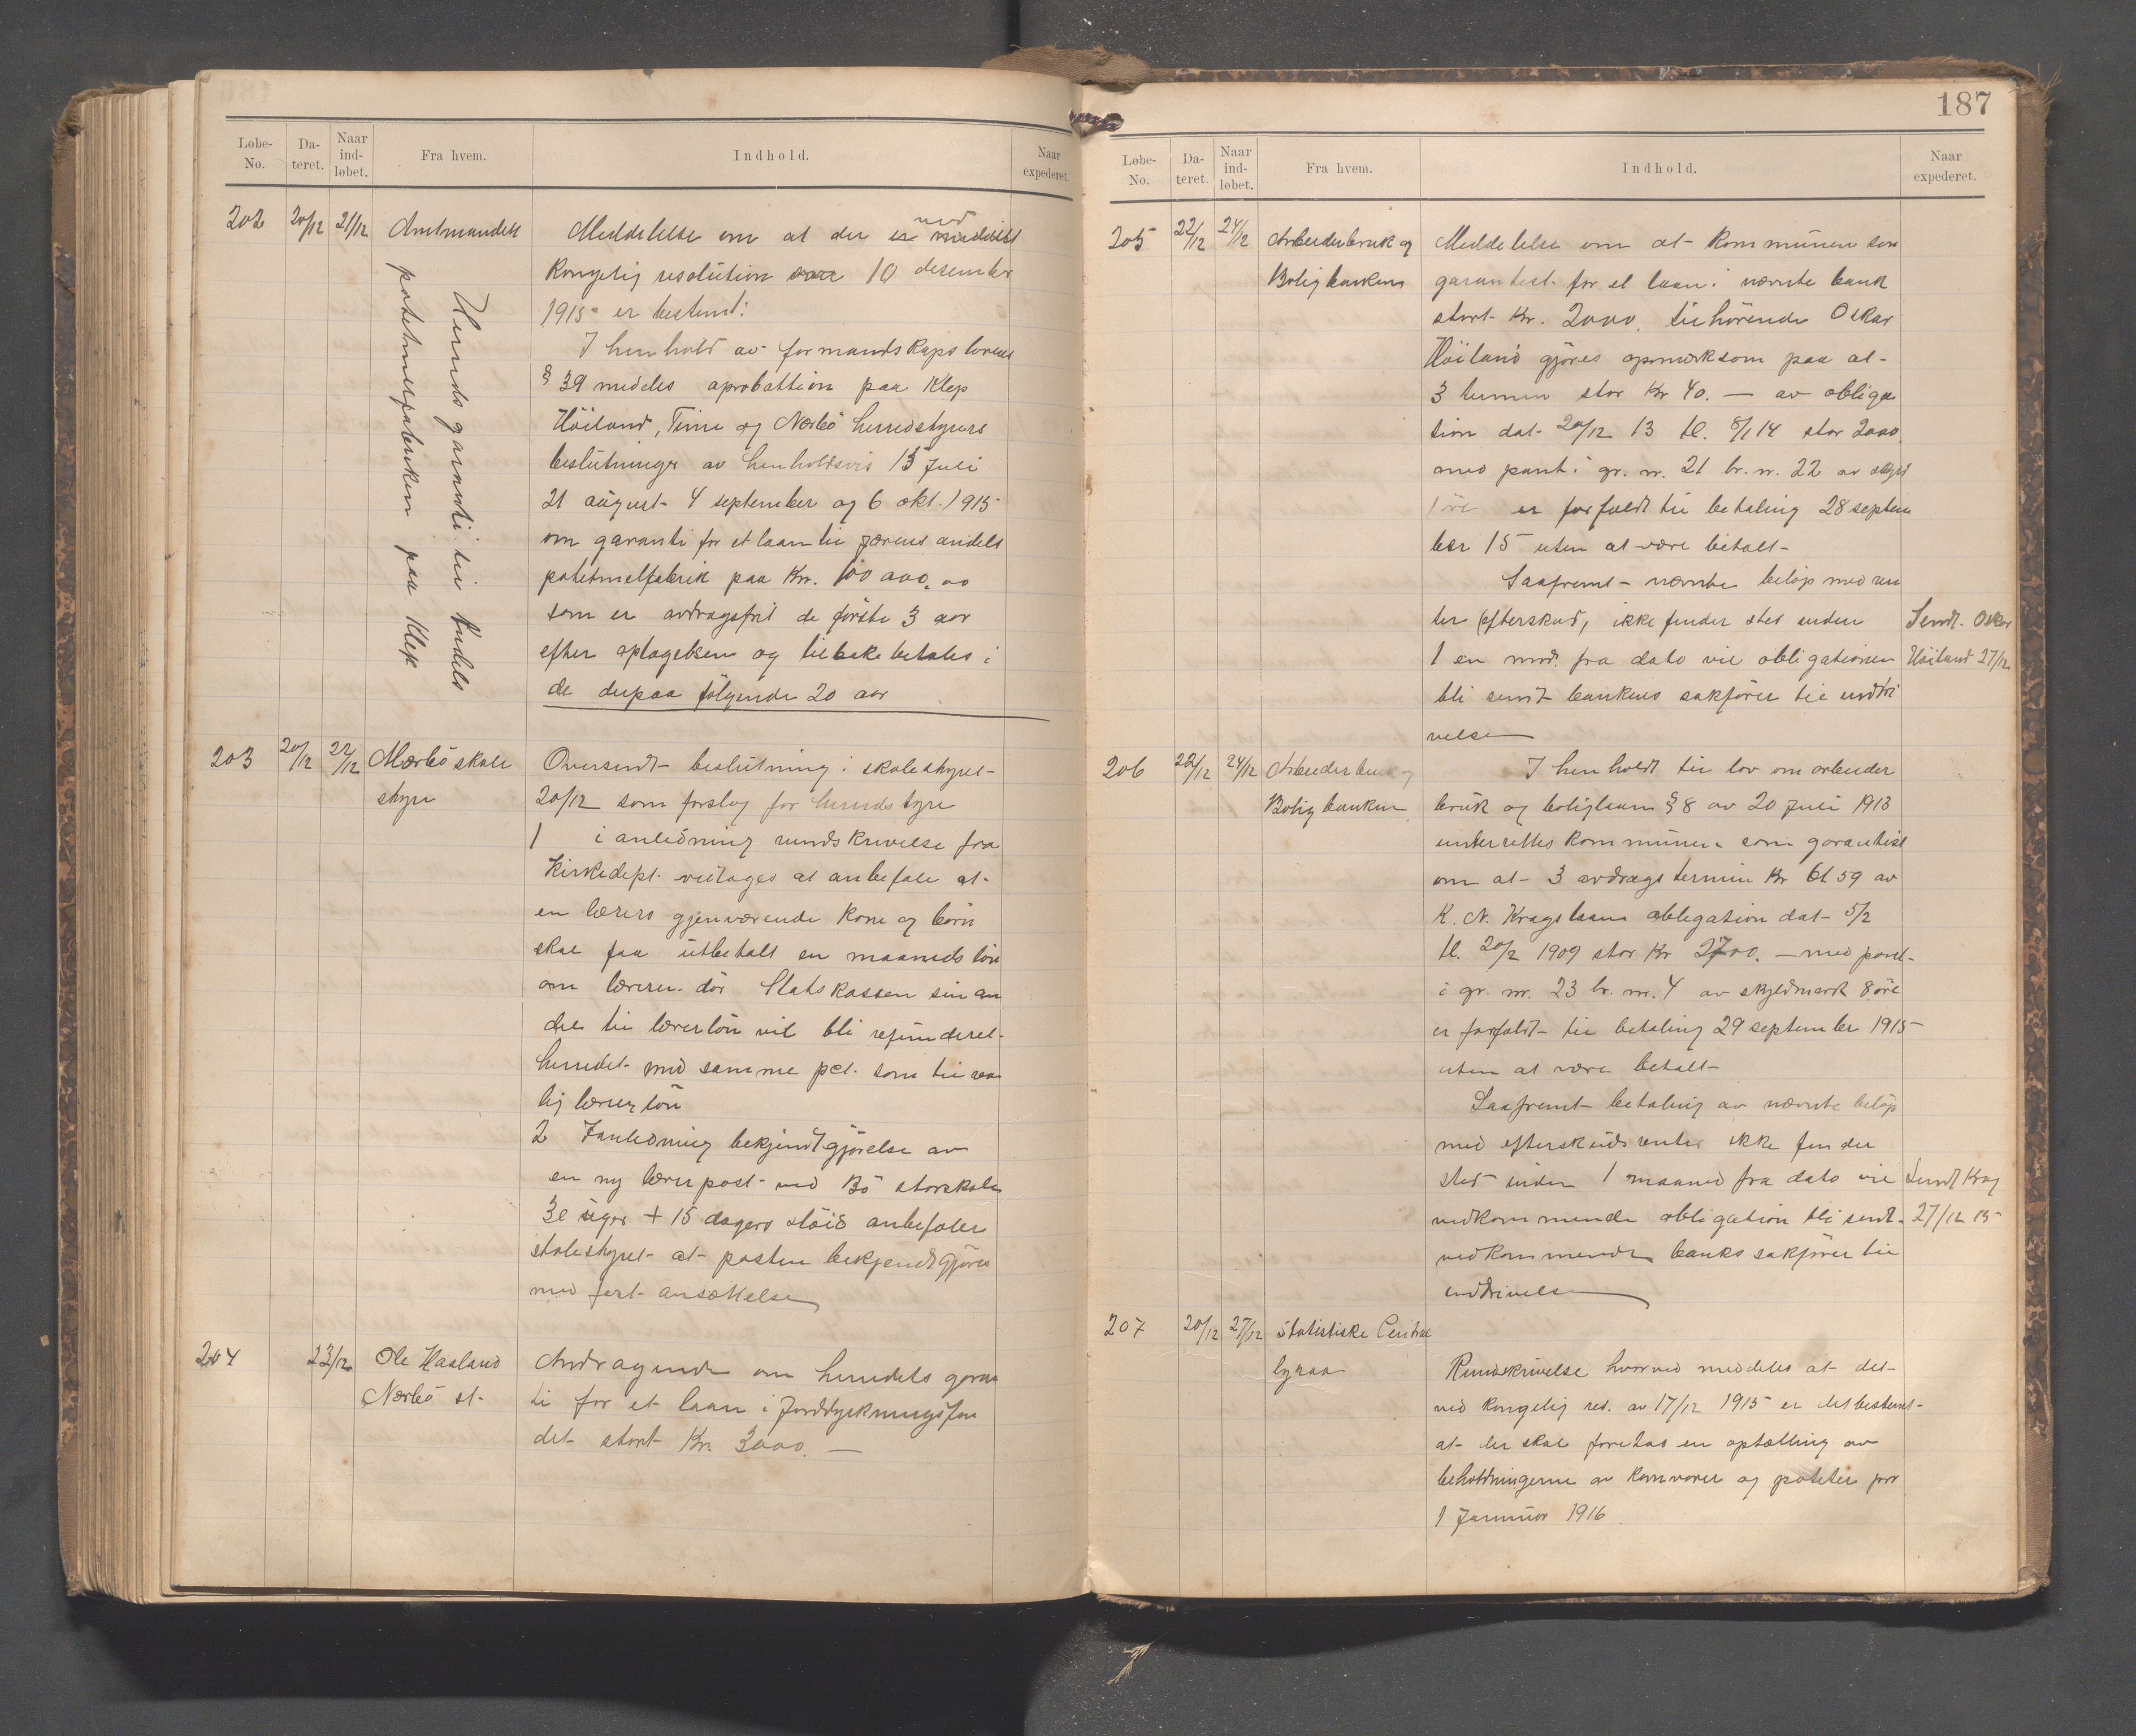 Løbe-No. Da-teret. Naar ind-løbet. Fra hvem. Indhold. Naar expederet.
202 20/12 21/12 Amtmanden
Herreds garanti til Andels
potetmelfabriken paa Klep
Meddelelse om at der ved
kongelig resolution 10 desember
1915 er bestemt:
I henhold av formandskapsloven
§ 39 meddeles aprobattion paa Klep
Höiland, Time og Nærbö herredstyrers
beslutninger av henholdsvis 15 Juli
21 august 4 september og 6 okt. 1915
om garanti for et laan til Jærens andels
potetmelfabrik paa Kr. 100 000.00
som er avdragsfrit de förste 3 aar
efter optagelsen og tilbakebetales i
de derpaa fölgende 20 aar
203 20/12 22/12 Nærbö skole
styre
Oversendt beslutning i skolestyret
20/12 som forslag for herredstyre
1 i anledning rundskrivelse fra
Kirkedept. vedtages at anbefale at
en lærers gjenværende kone og börn
skal faa utbetalt en maaneds lön
om læreren dör Statskassen sin an
del til lærerlön vil bli refunderet
herredet med samme pct. som til van
lig lærerlön
2 I anledning bekjendtgjörelse av
en ny lærerpost ved Bö storskole
30 uger + 15 dagers slöid anbefaler
skolestyret at posten bekjendtgjöres
med fast ansættelse
204 23/12 Ole Haaland
Nærbö st.
Andragende om herredets garan
ti for et laan i Jorddyrkningsfon
det stort Kr 3000.—
187
Løbe-No. Da-teret. Naar ind-løbet. Fra hvem. Indhold. Naar expederet.
205 22/12 24/12 Arbeiderbruk og
Boligbanken
Meddelelse om at kommunen som
garantist for et laan i nævnte bank
stort Kr. 2000. tilhörende Oskar
Höiland gjöres opmerksom paa at
3 termin stor Kr 40.— av obliga
tion dat 20/12 13 tl. 8/1 14 stor 2000
med pant i gr. nr. 21 br. nr. 22 av skyld
1 öre er forfaldt til betaling 28 septem
ber 15 uten at være betalt
Saafremt nævnte belöp med ren
ter (efterskud), ikke finder sted inden
1 en mnd. fra dato vil obligationen
bli sendt bankens sakförer til inddri
velse
Sendt Oskar
Höiland 27/12
206 22/12 24/12 Arbeiderbruk og
Boligbanken
I henholdt til lov om arbeider
bruk og boliglaan § 8 av 20 Juli 1913
underrettes kommunen som garantist
om at 3 avdrags termin Kr 61.59 av
K. N. Krags laans obligation dat 5/2
tl. 20/2 1909 stor Kr 2700.— med pant
i gr. nr. 23 br. nr. 4 av skyldmark 8 öre
er forfaldt til betaling 29 september 1915
uten at være betalt
Saafremt betaling av nævnte belöp
med efterskudsrenter ikke finder
sted inden 1 maaned fra dato vil
vedkommende obligation bli sendt
vedkommende banks sakförer til
inddrivelse
Sendt Krag
27/12 15
207 20/12 27/12 Statistiske Central
byraa
Rundskrivelse hvorved meddeles at det
ved kongelig res. av 17/12 1915 er det bestemt
at der skal foretas en optælling av
beholdningerne av kornvarer og poteter pr
1 Januar 1916.